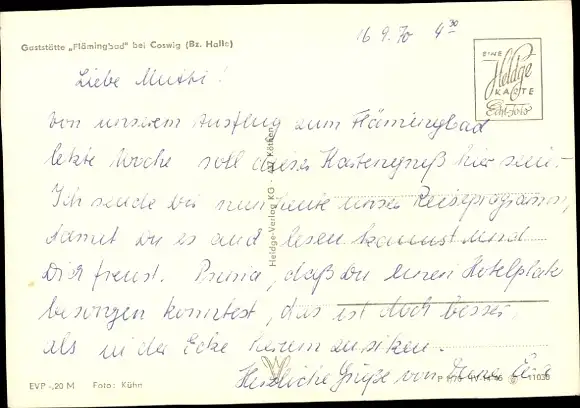 16.9.70 4³⁰
Gaststätte „Flämingbad" bei Coswig (Bz. Halle)
EINE
Heldge
KARTE
Echt-Foto
Liebe Mutti!
Von unserem Ausflug zum Flämingbad
letzte Woche soll dieser Kartengruß hier sein.
Ich sende Dir nun heute unser Reiseprogramm,
damit Du es auch lesen kannst und
Dich freust. Prima, daß Du einen Hotelplatz
besorgen konntest, das ist doch besser,
als in der Ecke herum zu sitzen.
Herzliche Grüße von Deiner
Heldge-Verlag KG - 437 Köthen
EVP -,20 M Foto: Kühn
11038